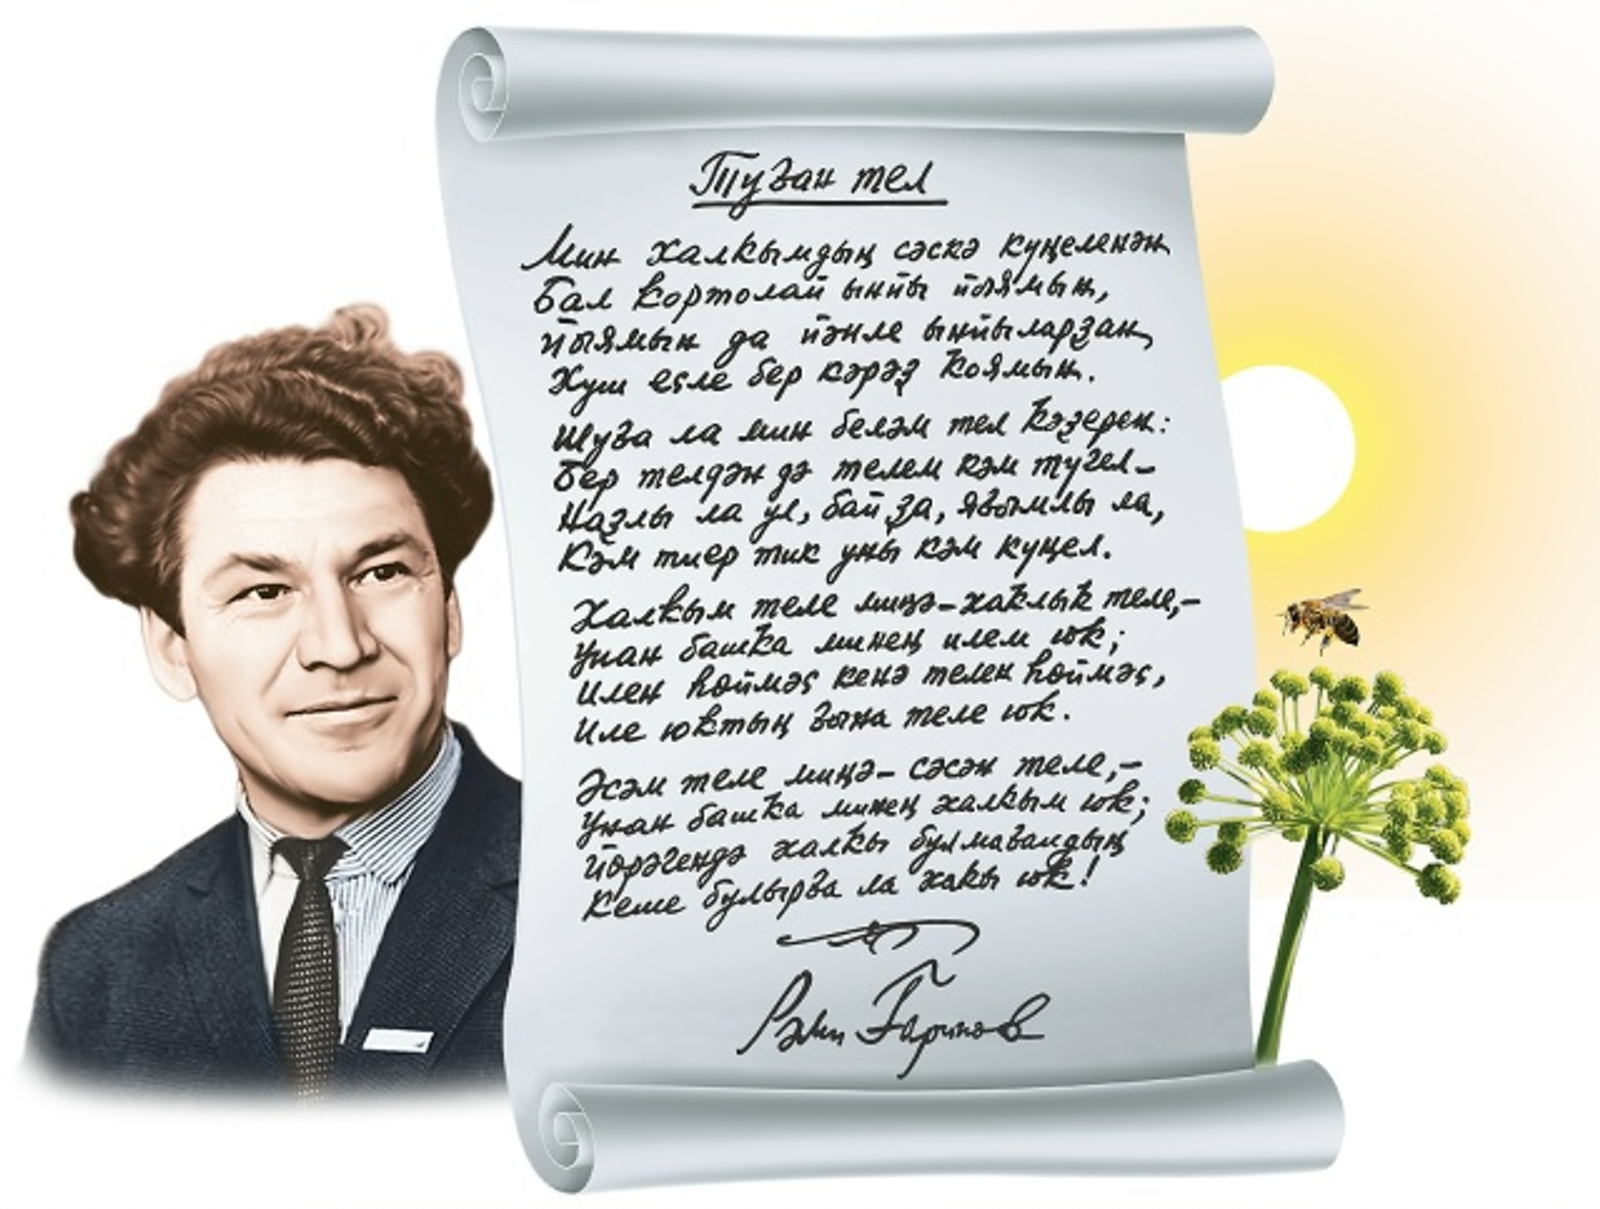 Туған тел
Мин халҡымдың сәскә күңеленән
Бал ҡортолай ынйы йыямын,
Йыямын да йәнле ынйыларҙан,
Хуш еҫле бер кәрәҙ ҡоямын.
Шуға ла мин беләм тел ҡәҙерен:
Бер телдән дә телем кәм түгел–
Наҙлы ла ул, бай ҙа, яғымлы ла,
Кәм тиер тик уны кәм күңел.
Халҡым теле миңә–хаҡлыҡ теле,–
Унан башҡа минең илем юҡ;
Илен һөймәҫ кенә телен һөймәҫ,
Иле юҡтың ғына теле юҡ.
Әсәм теле миңә– сәсән теле,–
Унан башҡа минең халҡым юҡ;
Йөрәгендә халҡы булмағандың
Кеше булырға ла хаҡы юҡ!
Рәми Ғарипов